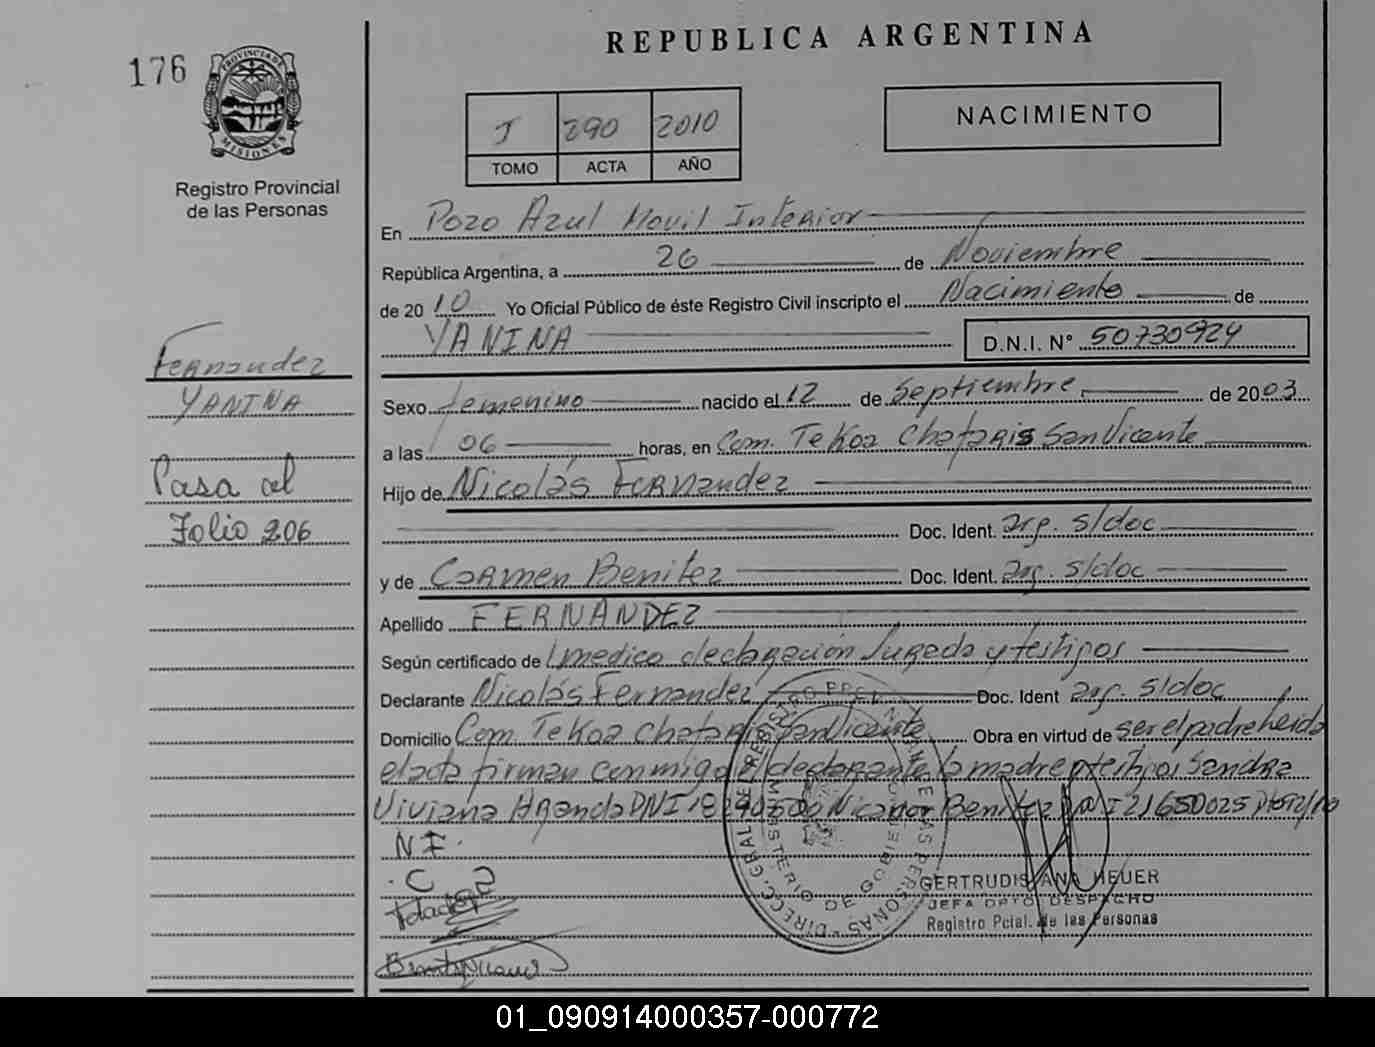 REPUBLICA ARGENTINA
176
PROVINCIA DE
MISIONES
Registro Provincial
de las Personas
I 290 2010
TOMO ACTA AÑO
NACIMIENTO
En Pozo Azul Movil Interior
República Argentina, a 26 de Noviembre
de 2010 Yo Oficial Público de éste Registro Civil inscripto el Nacimiento de
YANINA D.N.I. N° 50730924
Fernandez
YANINA
Pasa al
Folio 206
Sexo femenino nacido el 12 de Septiembre de 2003
a las 06 horas, en Com. Tekoa Chafaris San Vicente
Hijo de Nicolás Fernandez
Doc. Ident. arg. s/doc
y de Carmen Benitez Doc. Ident. arg. s/doc
Apellido FERNANDEZ
Según certificado de medico declaración Jurada y testigos
Declarante Nicolás Fernandez Doc. Ident arg. s/doc
Domicilio Com. Tekoa Chafaris San Vicente Obra en virtud de ser el padre heida
el acta firman conmigo el declarante la madre y testigos Sandra
Viviana DNI Nicanor Benitez DNI 21650025
N F.
. C
Benitez Nicanor
REGISTRO PCIAL DE LAS PERSONAS
DIRECC. GRAL. DEL
MINISTERIO DE GOBIERNO
GERTRUDIS ANA HEUER
JEFA DPTO DESPACHO
Registro Pcial. de las Personas
01_090914000357-000772